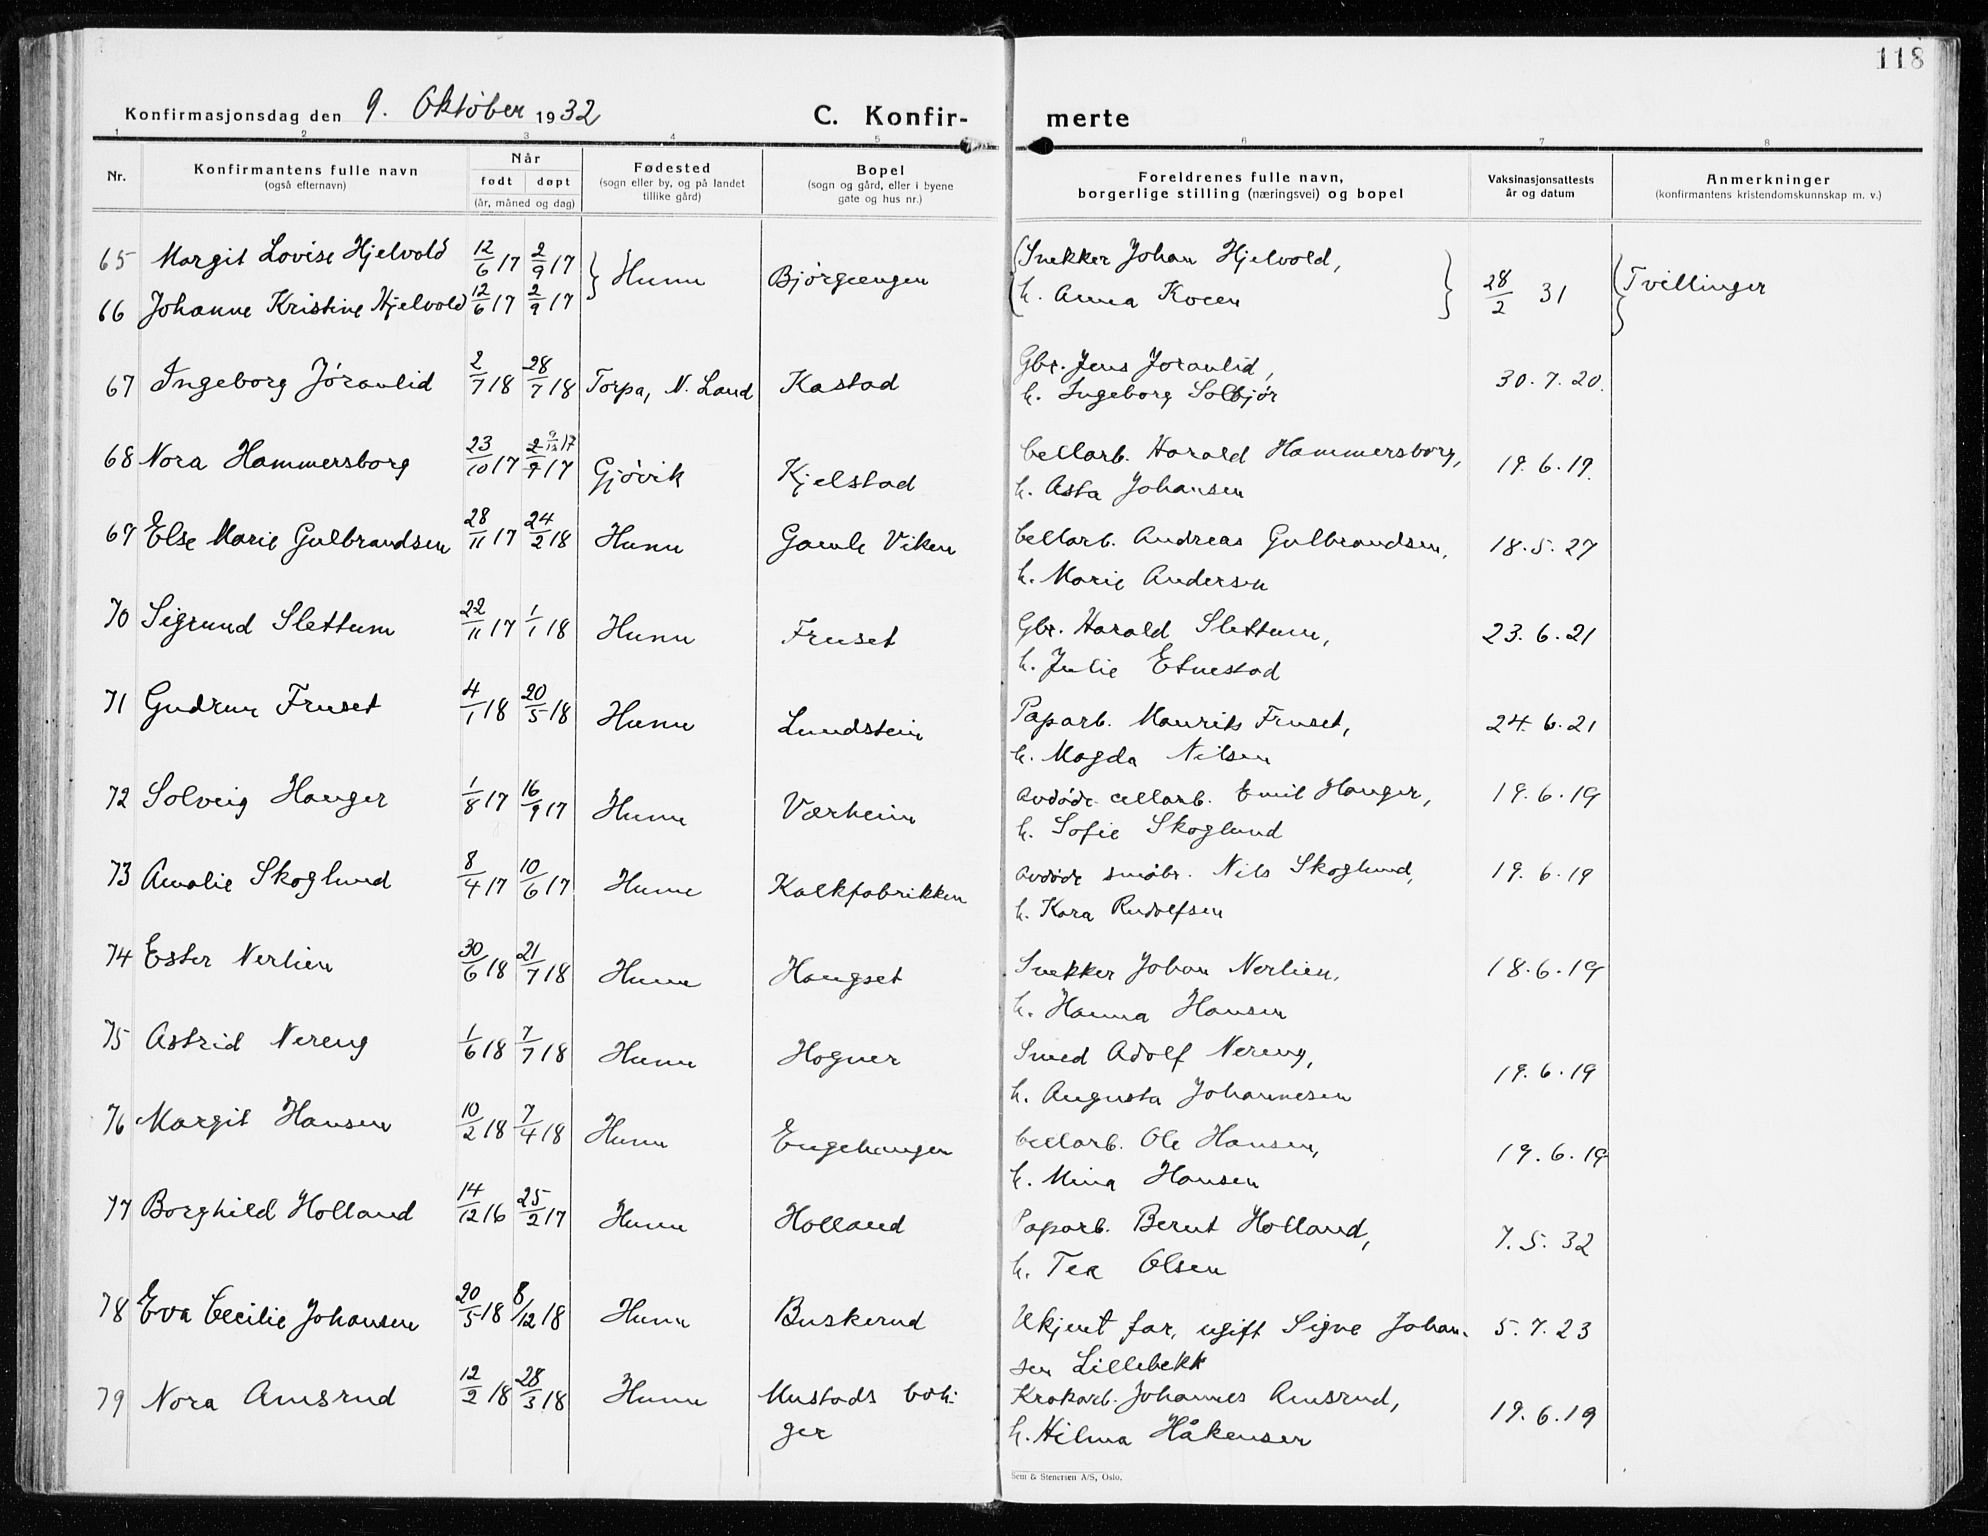 118
Konfirmasjonsdag den 9. Oktober 1932 C. Konfir- merte
1 2 3 4 5 6 7 8
Nr. Konfirmantens fulle navn (også efternavn) Når født døpt (år, måned og dag) Fødested (sogn eller by, og på landet tillike gård) Bopel (sogn og gård, eller i byene gate og hus nr.) Foreldrenes fulle navn, borgerlige stilling (næringsvei) og bopel Vaksinasjonsattests år og datum Anmerkninger (konfirmantens kristendomskunnskap m. v.)
65 Margit Lovise Hjelvold 12/6 17 2/9 17 } Hunn Bjørgeengen (Snekker Johan Hjelvold, } 28/2 31 { Tvillinger
66 Johanne Kristine Hjelvold 12/6 17 2/9 17 h. Anna Koeen
67 Ingeborg Jøranlid 2/7 18 28/7 18 Torpa, N. Land Kastad Gbr. Jens Joranlid, 30.7.20.
h. Ingeborg Solbjør
68 Nora Hammersborg 23/10 17 2/9 17 9/12 17 Gjøvik Kjelstad Cellarb. Harald Hammersborg, 19.6.19.
h. Asta Johansen
69 Else Marie Gulbrandsen 28/11 17 24/2 18 Hunn Gamle Viken Cellarb. Andreas Gulbrandsen, 18.5.27
h. Marie Andersen
70 Sigrund Slettum 22/11 17 1/1 18 Hunn Fruset Gbr. Harald Slettum, 23.6.21
h. Julie Etnestad
71 Gudrun Fruset 4/1 18 20/5 18 Hunn Lundstein Paparb. Maurits Fruset, 24.6.21
h. Magda Nilsen
72 Solveig Hanger 1/8 17 16/9 17 Hunn Værheim Avdøde cellarb. Emil Hanger, 19.6.19
h. Sofie Skoglund
73 Amalie Skoglund 8/4 17 10/6 17 Hunn Kalkfabrikken Avdøde småbr. Nils Skoglund, 19.6.19
h. Kara Rudolfsen
74 Ester Nerlien 30/6 18 21/7 18 Hunn Haugset Snekker Johan Nerlien, 18.6.19
h. Hanna Hansen
75 Astrid Nereng 1/6 18 7/7 18 Hunn Hogner Smed Adolf Nereng, 19.6.19
h. Augusta Johannesen
76 Margit Hansen 10/2 18 7/4 18 Hunn Engehaugen Cellarb. Ole Hansen, 19.6.19
h. Mina Hansen
77 Borghild Holland 14/12 16 25/2 17 Hunn Holland Paparb. Bernt Holland, 7.5.32
h. Tea Olsen
78 Eva Cecilie Johansen 20/5 18 8/12 18 Hunn Buskerud Ukjent far, ugift Signe Johan- 5.7.23
sen Lillebekk
79 Nora Amsrud 12/2 18 28/3 18 Hunn Mustads boli- Krokarb. Johannes Amsrud, 19.6.19
ger h. Hilma Håkensen
Sem & Stenersen A/S, Oslo.